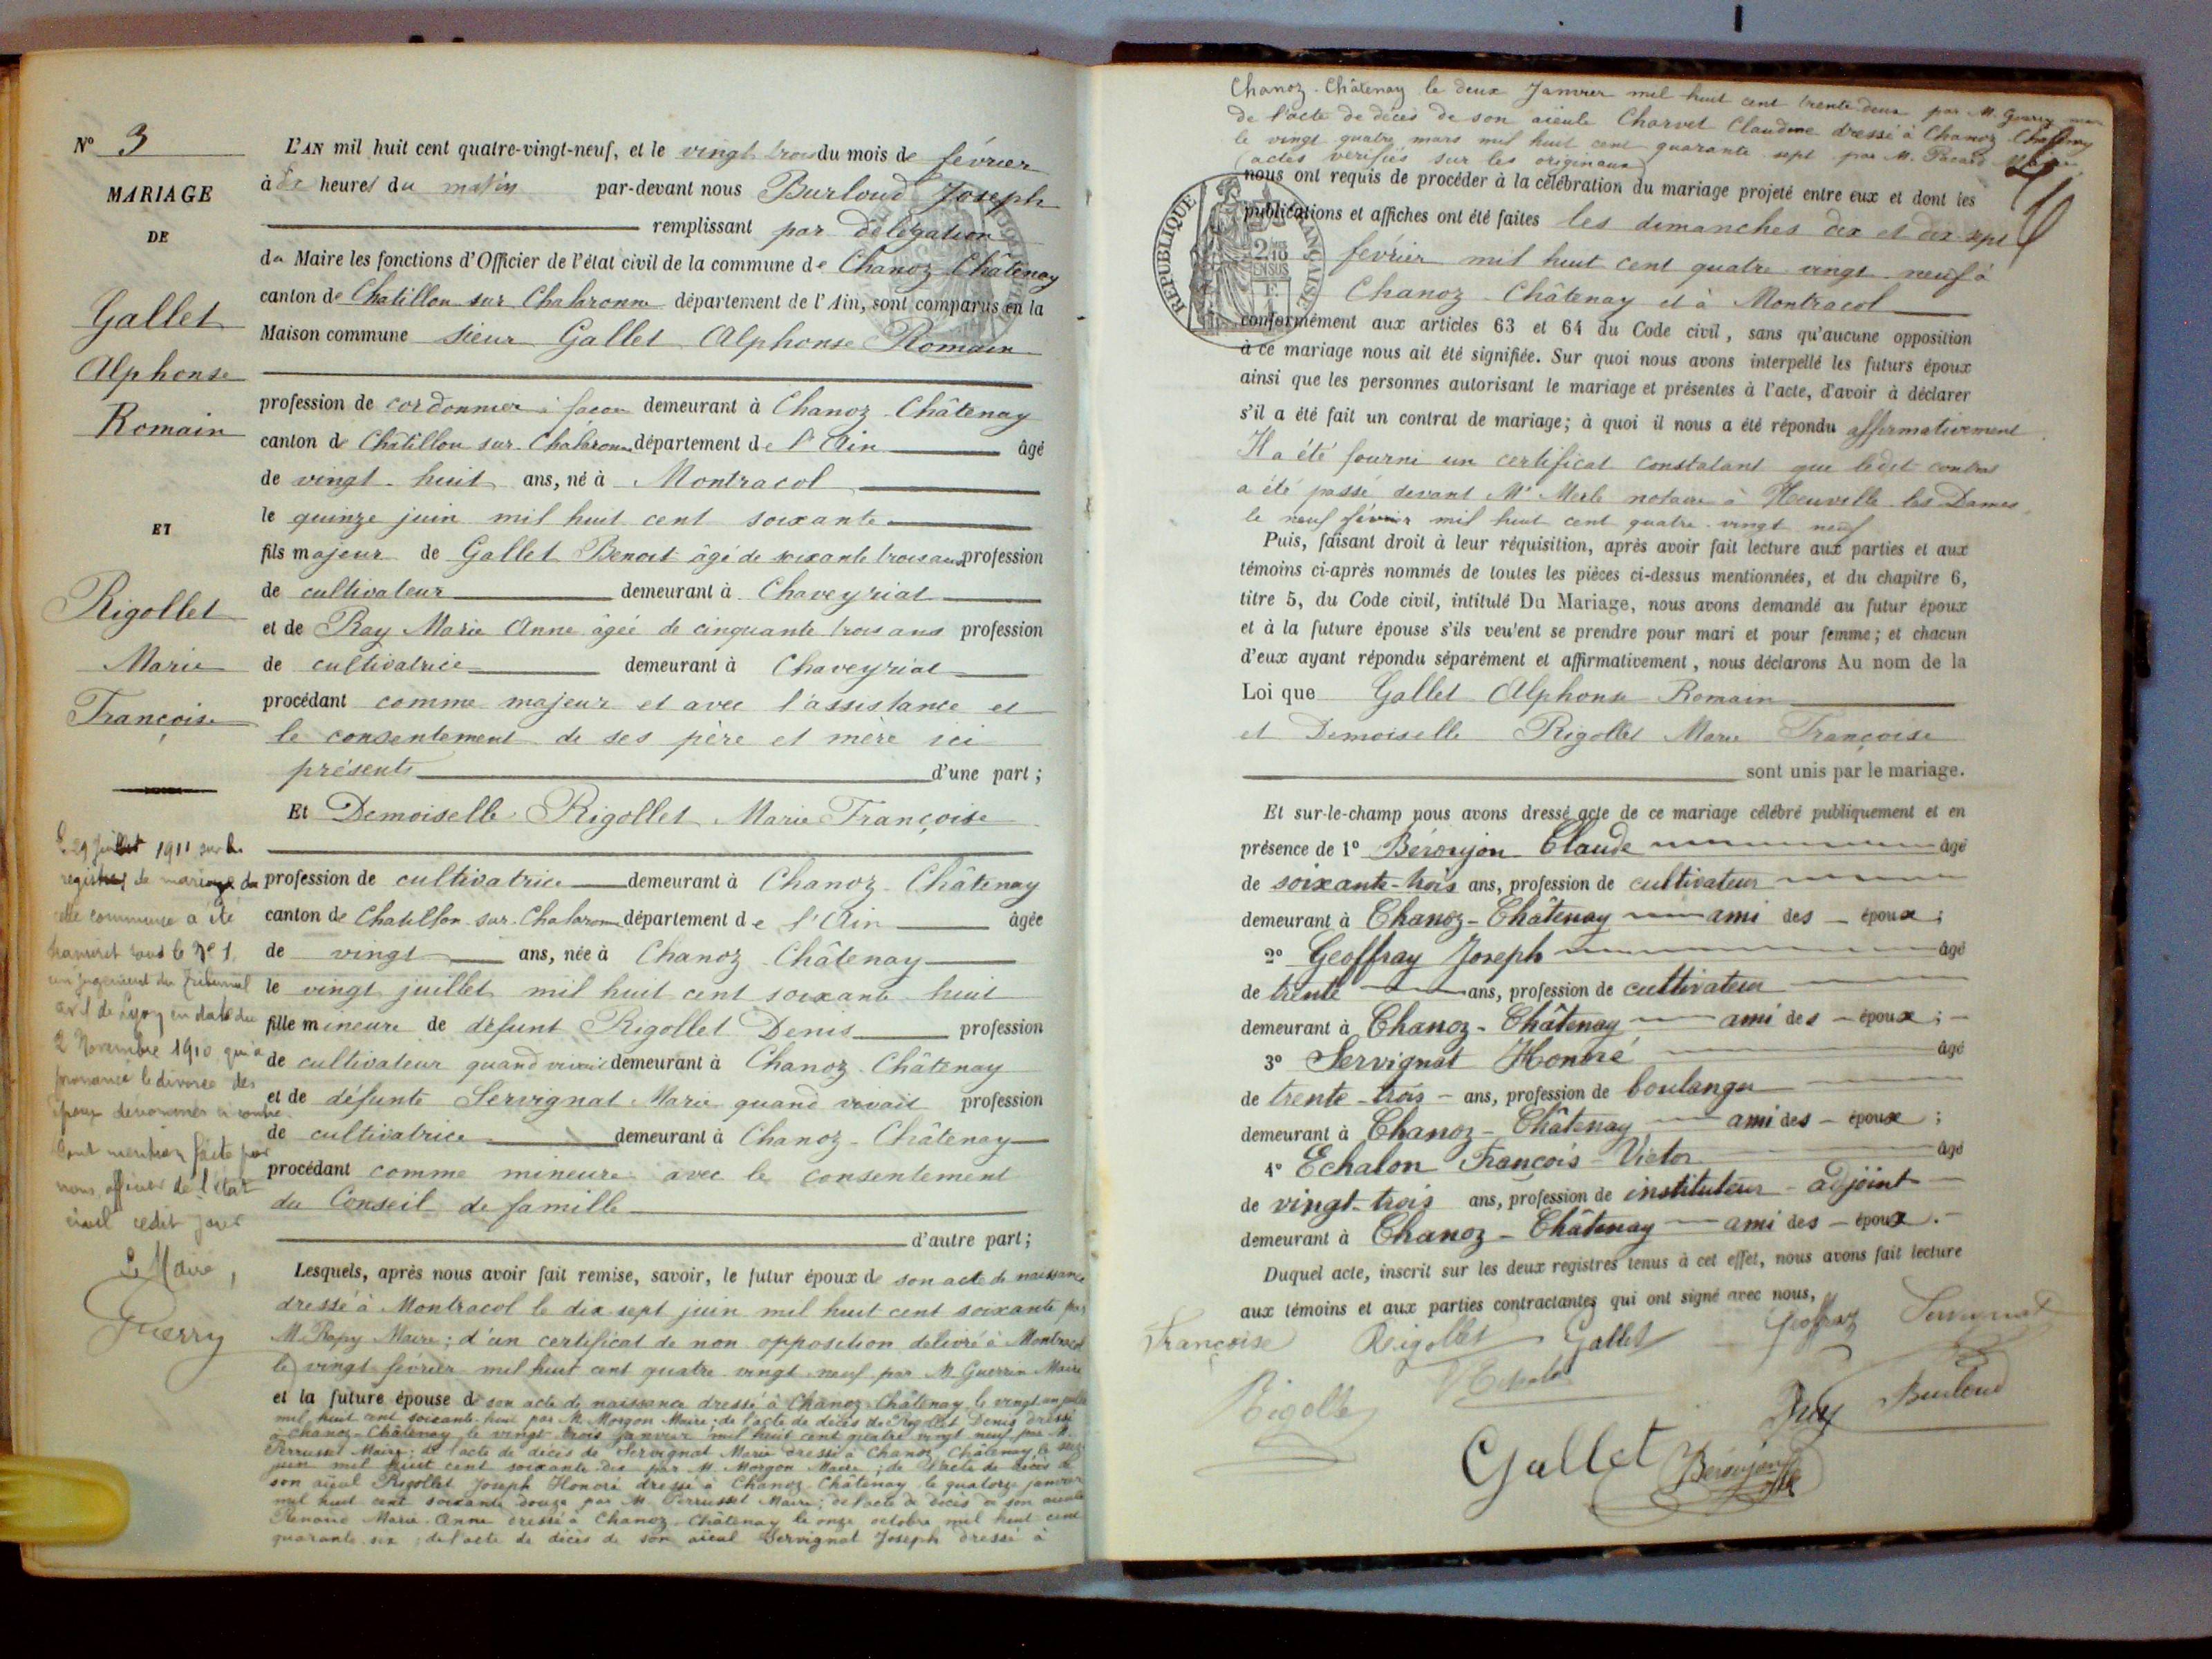 N° 3
MARIAGE
DE
Gallet
Alphonse
Romain
ET
Rigollet
Marie
Françoise
Le 29 juillet 1911 sur le
registre de mariage de
cette commune a été
transcrit sous le N° 1,
un jugement du Tribunal
civil de Lyon en date du
2 Novembre 1910 qui a
prononcé le divorce des
époux dénommés ci contre.
Dont mention faite par
nous officier de l'état
civil cedit jour
Le Maire,
Guerry
L'AN mil huit cent quatre-vingt-neuf, et le vingt trois du mois de février
à dix heures du matin par-devant nous Burloud Joseph
remplissant par délégation
du Maire les fonctions d'Officier de l'état civil de la commune de Chanoz Châtenay
canton de Chatillon sur Chalaronne département de l'Ain, sont comparus en la
Maison commune sieur Gallet Alphonse Romain
profession de cordonnier à façon demeurant à Chanoz-Châtenay
canton de Châtillon sur Chalaronne département de l'Ain âgé
de vingt-huit ans, né à Montracol
le quinze juin mil huit cent soixante
fils majeur de Gallet Benoit âgé de soixante trois ans profession
de cultivateur demeurant à Chaveyriat
et de Ray Marie Anne âgée de cinquante trois ans profession
de cultivatrice demeurant à Chaveyriat
procédant comme majeur et avec l'assistance et
le consentement de ses père et mère ici
présents d'une part;
Et Demoiselle Rigollet Marie Françoise
profession de cultivatrice demeurant à Chanoz-Châtenay
canton de Chatillon sur Chalaronne département de l'Ain âgée
de vingt ans, née à Chanoz Châtenay
le vingt juillet mil huit cent soixante huit
fille mineure de défunt Rigollet Denis profession
de cultivateur quand vivait demeurant à Chanoz-Châtenay
et de défunte Servignat Marie quand vivait profession
de cultivatrice demeurant à Chanoz-Châtenay
procédant comme mineure avec le consentement
du Conseil de famille
d'autre part;
Lesquels, après nous avoir fait remise, savoir, le futur époux de son acte de naissance
dressé à Montracol le dix sept juin mil huit cent soixante par
M. Rapy Maire; d'un certificat de non opposition délivré à Montracol
le vingt février mil huit cent quatre vingt neuf par M Guerrin Maire
et la future épouse de son acte de naissance dressé à Chanoz-Châtenay le vingt un juillet
mil huit cent soixante-huit par M. Morgon Maire; de l'acte de décès de Rigollet Denis dressé
à Chanoz-Châtenay le vingt trois janvier mil huit cent quatre vingt neuf par M.
Perrusset Maire; de l'acte de décès de Servignat Marie dressé à Chanoz Châtenay le seize
juin mil huit cent soixante dix par M. Morgon Maire; de l'acte de décès de
son aïeul Rigollet Joseph Honoré dressé à Chanoz-Châtenay le quatorze janvier
mil huit cent soixante douze par M. Perrusset Maire; de l'acte de décès de son aieule
Renaud Marie-Anne dressé à Chanoz-Châtenay le onze octobre mil huit cent
quarante six; de l'acte de décès de son aïeul Servignat Joseph dressé à
Chanoz-Châtenay le deux Janvier mil huit cent trente deux par M.
de l'acte de décès de son aieule Charvet Claudine dressé à Chanoz Châtenay
le vingt quatre mars mil huit cent quarante sept par M. Pacard Maire
(actes vérifiés sur les originaux)
nous ont requis de procéder à la célébration du mariage projeté entre eux et dont les
publications et affiches ont été faites les dimanches dix et dix sept
février mil huit cent quatre vingt neuf à
Chanoz-Châtenay et à Montracol
conformément aux articles 63 et 64 du Code civil, sans qu'aucune opposition
à ce mariage nous ait été signifiée. Sur quoi nous avons interpellé les futurs époux
ainsi que les personnes autorisant le mariage et présentes à l'acte, d'avoir à déclarer
s'il a été fait un contrat de mariage; à quoi il nous a été répondu affirmativement.
Il a été fourni un certificat constatant que ledit contrat
a été passé devant Me Merle notaire à Neuville les Dames
le neuf février mil huit cent quatre-vingt neuf
Puis, faisant droit à leur réquisition, après avoir fait lecture aux parties et aux
témoins ci-après nommés de toutes les pièces ci-dessus mentionnées, et du chapitre 6,
titre 5, du Code civil, intitulé Du Mariage, nous avons demandé au futur époux
et à la future épouse s'ils veulent se prendre pour mari et pour femme; et chacun
d'eux ayant répondu séparément et affirmativement, nous déclarons Au nom de la
Loi que Gallet Alphonse Romain
et Demoiselle Rigollet Marie Françoise
sont unis par le mariage.
Et sur-le-champ nous avons dressé acte de ce mariage célébré publiquement et en
présence de 1° Béroujon Claude âgé
de soixante-trois ans, profession de cultivateur
demeurant à Chanoz-Châtenay ami des époux;
2° Geoffray Joseph âgé
de trente ans, profession de cultivateur
demeurant à Chanoz-Châtenay ami des époux;
3° Servignat Honoré âgé
de trente-trois ans, profession de boulanger
demeurant à Chanoz-Châtenay ami des époux;
4° Echalon François-Victor âgé
de vingt-trois ans, profession de instituteur-adjoint
demeurant à Chanoz-Châtenay ami des époux.
Duquel acte, inscrit sur les deux registres tenus à cet effet, nous avons fait lecture
aux témoins et aux parties contractantes qui ont signé avec nous,
Françoise Rigollet Gallet Geoffray Servignat
Rigollet Echalon Burloud
Gallet Béroujon
RÉPUBLIQUE FRANÇAISE
2/10 EN SUS